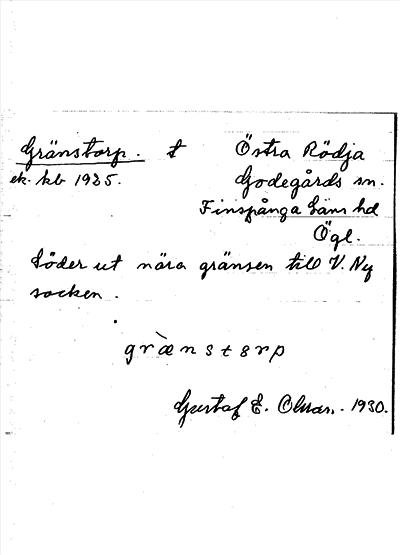 Gränstorp. t Östra Rödja
ek. kb 1925. Godegårds sn.
Finspånga läns hd
Ögl.
Söder ut nära gränsen till V. Ny
socken.
grænstorp
Gustaf E. Olsson. 1930.